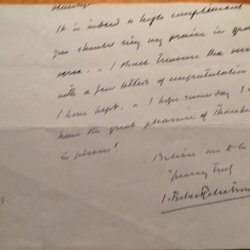 It is indeed a high compliment
you should sing my praise in
verse. I shall treasure that
with a few letters of congratulation
I have kept. I hope some day I
have the great pleasure of thanking
in person!
Believe me to be
Yours truly